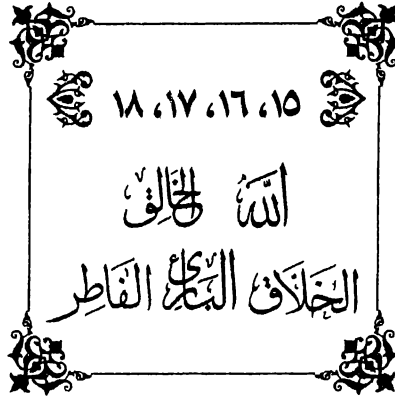 ١٥، ١٦، ١٧، ١٨
اللَّهُ الخَالِقُ
الخَلَّاقُ البَارِئُ الفَاطِرُ